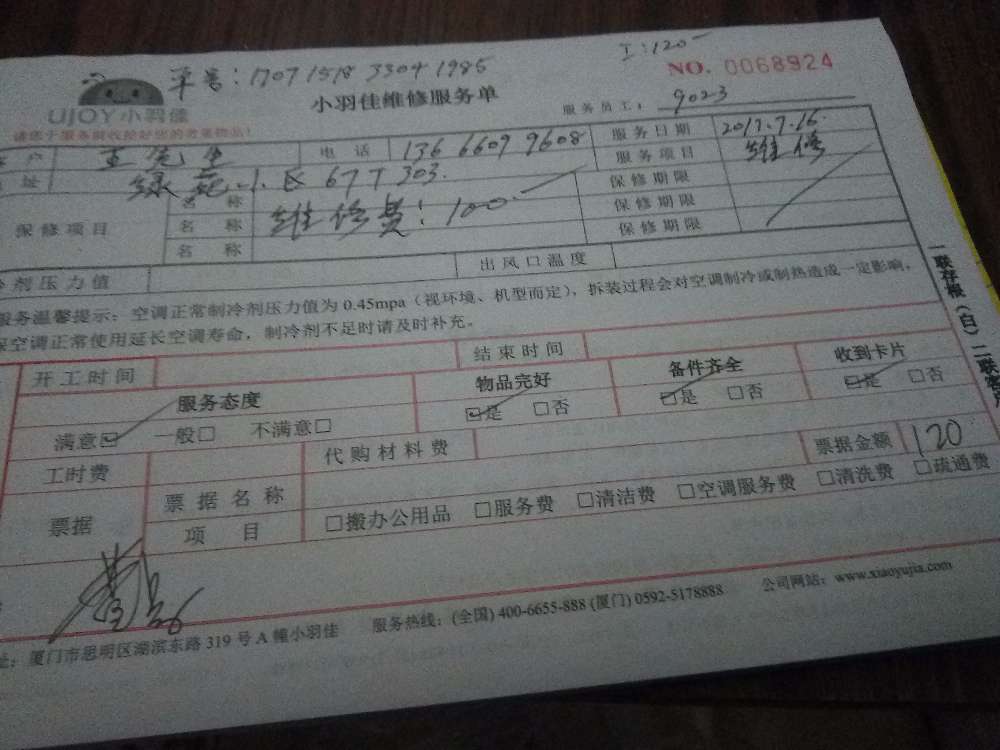 单号：17071518 33041985
I：120-
NO. 0068924
UJOY小羽佳
小羽佳维修服务单
服务员工：9023
请您于服务前收拾好您的贵重物品！
户 王先生 电话 13666099608 服务日期 2017.7.16
址 绿苑小区 67T 303. 服务项目 维修
保修项目 名称 维修费：100- 保修期限
名称 保修期限
名称 保修期限
剂压力值 出风口温度
服务温馨提示：空调正常制冷剂压力值为 0.45mpa（视环境、机型而定），拆装过程会对空调制冷或制热造成一定影响，
保空调正常使用延长空调寿命，制冷剂不足时请及时补充。
开工时间 结束时间
服务态度 物品完好 备件齐全 收到卡片
满意☑ 一般□ 不满意□ ☑是 □否 ☑是 □否 ☑是 □否
工时费 代购材料费 票据金额 120
票据 票据名称
项目 □搬办公用品 □服务费 □清洁费 □空调服务费 □清洗费 □疏通费
址：厦门市思明区湖滨东路 319 号 A 幢小羽佳 服务热线：(全国) 400-6655-888 (厦门) 0592-5178888 公司网站：www.xiaoyujia.com
一联存根（白）二联客户